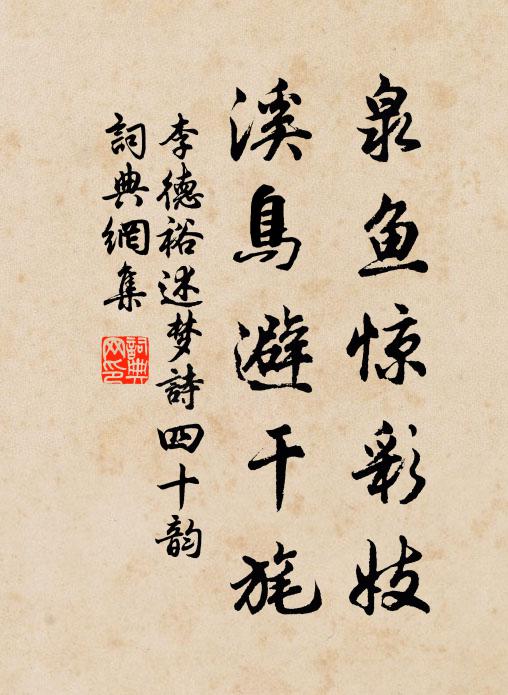 泉鱼惊彩妓
溪鳥避干旄
李德裕述梦詩四十韵
詞典網集
詞典网印